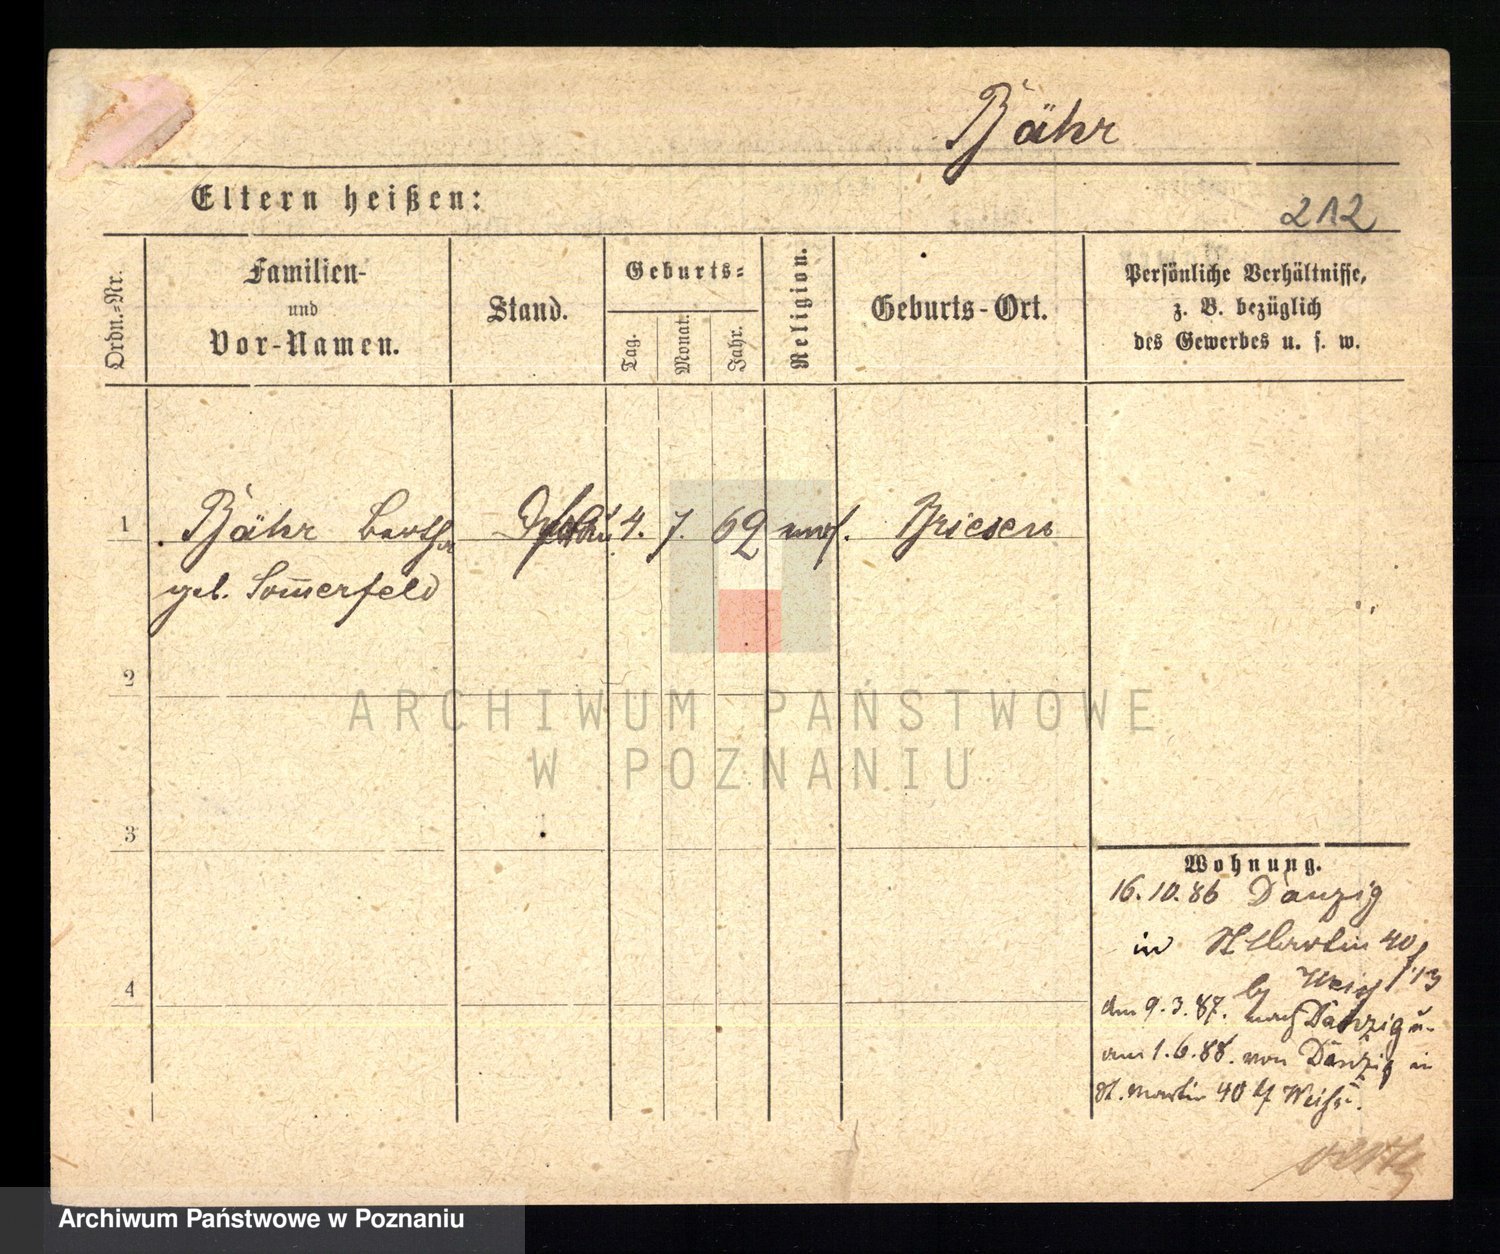 Bähr
Eltern heißen:
212
Ordn.-Nr.
Familien-
und
Vor-Namen.
Stand.
Geburts-
Tag.
Monat.
Jahr.
Religion.
Geburts-Ort.
Persönliche Verhältnisse,
z. B. bezüglich
des Gewerbes u. s. w.
1 Bähr Bertha 4. 7. 62 Briesen
geb. Som̅erfeld
2
3
4
Wohnung.
16.10.86 Danzig
in St Martin 40
by Weiss
am 9.3.87. nach Danzig u.
am 1.6.88. von Danzig in
St. Martin 40 bf Weiss.
ARCHIWUM PAŃSTWOWE
W POZNANIU
Archiwum Państwowe w Poznaniu